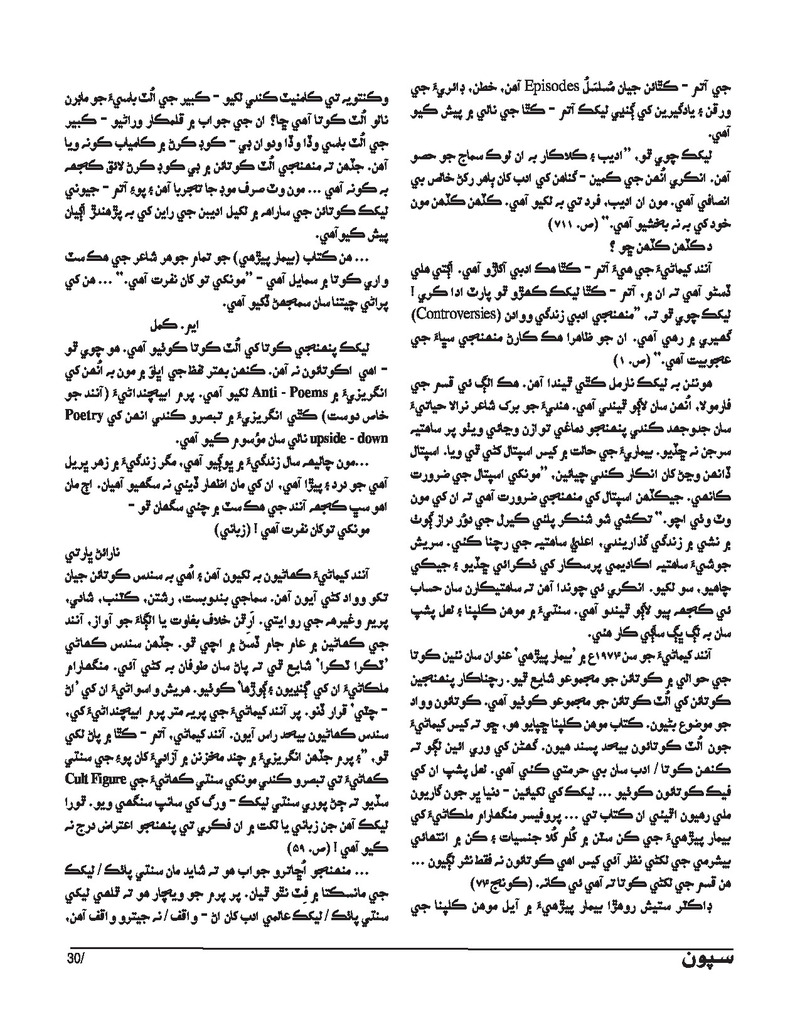 جي آتم - ڪٿائن جيان مُسلسَلُ Episodes آهن، خطن، ڊائريءَ جي
ورقن ۽ يادگيرين کي ڳنڍيي ليکڪ آتم - ڪٿا جي نالي ۾ پيش ڪيو
آهي.
ليکڪ چوي ٿو، ”اديب ۽ ڪلاڪار به ان لوڪ سماج جو حصو
آهن. انڪري اُنهن جي ڪمين - گناهن کي ادب کان ٻاهر رکڻ خالص بي
انصافي آهي. مون ان اديب، فرد تي به لکيو آهي. ڪڏهن ڪڏهن مون
خود کي به نه بخشيو آهي.“ (ص. ٧١١)
د ڪڏهن ڪڏهن ڇو ؟
آنند کيماڻيءَ جي هيءَ آتم - ڪٿا هڪ ادبي آکاڙو آهي. اڳتي هلي
ڏسڻو آهي ته ان ۾، آتم - ڪٿا ليکڪ ڪهڙو ٿو پارٽ ادا ڪري !
ليکڪ چوي ٿو ته، ”منهنجي ادبي زندگي ووادن (Controversies)
گهيري ۾ رهي آهي. ان جو ظاهرا هڪ ڪارڻ منهنجي سڀاءَ جي
عجوبيت آهي.“ (ص. ١)
هونئن به ليکڪ نارمل ڪٿي ٿيندا آهن. هڪ الڳ ئي قسم جي
فارمولا، اُنهن سان لاڳو ٿيندي آهي. هنديءَ جو برک شاعر نرالا حياتيءَ
سان جدوجهد ڪندي پنهنجو دماغي توازن وڃائي ويٺو پر ساهتيہ
سرجن نه ڇڏيو. بيماريءَ جي حالت ۾ کيس اسپتال کڻي ٿي ويا. اسپتال
ڏانهن وڃڻ کان انڪار ڪندي چيائين، ”مونکي اسپتال جي ضرورت
ڪانهي. جيڪڏهن اسپتال کي منهنجي ضرورت آهي ته ان کي مون
وٽ وٺي اچو.“ تڪشي شو شنڪر پلئي ڪيرل جي دوُر دراز ڳوٺ
۾ نشي ۾ زندگي گذاريندي، اعليٰ ساهتيہ جي رچنا ڪئي. سريش
جوشيءَ ساهتيہ اڪاديمي پرسڪار کي ٺڪرائي ڇڏيو ۽ جيڪي
چاهيو، سو لکيو. انڪري ئي چوندا آهن ته ساهتيڪارن سان حساب
ئي ڪجهہ ٻيو لاڳو ٿيندو آهي. سنتيءَ ۾ موهن ڪلپنا ۽ لعل پشپ
سان به ٺڳ ڀڳ ساڳي ڪار هئي.
آنند کيماڻيءَ جو سن ١٩٧٤ع ۾ ’بيمار پيڙهي‘ عنوان سان نئين ڪوتا
جي حوالي ۾ ڪوتائن جو مجموعو شايع ٿيو. رچناڪار پنهنجين
ڪوتائن کي اُلٽ ڪوتائن جو مجموعو ڪوٺيو آهي. ڪوتائون وواد
جو موضوع بڻيون. ڪتاب موهن ڪلپنا ڇپايو هو، ڇو ته کيس کيماڻيءَ
جون اُلٽ ڪوتائون بيحد پسند هيون. گهڻن کي وري ائين لڳو ته
ڪنهن ڪوتا / ادب سان بي حرمتي ڪئي آهي. لعل پشپ ان کي
فيڪ ڪوتائون ڪوٺيو ... ليکڪ کي لکيائين - دنيا ڀر جون گاريون
ملي رهيون اٿيئي ان ڪتاب تي ... پروفيسر منگهارام ملڪاڻيءَ کي
بيمار پيڙهيءَ جي ڪن سٽن ۾ کُلم کُلا جنسيات ۽ ڪن ۾ انتهائي
بيشرمي جي لکڻي نظر آئي کيس اهي ڪوتائون نه فقط نثر لڳيون ...
هن قسم جي لکڻي ڪوتا ته آهي ئي ڪانہ. (ڪونج ٧۴)
ڊاڪٽر ستيش روهڙا بيمار پيڙهيءَ ۾ آيل موهن ڪلپنا جي
وڪنتويہ تي ڪامنيٽ ڪندي لکيو - ڪبير جي اُلٽ باسيءَ جو ماڊرن
نالو اُلٽ ڪوتا آهي ڇا؟ ان جي جواب ۾ قلمڪار وراڻيو - ڪبير
جي اُلٽ باسي وڏا وڏا ودوان بي - ڪوڊ ڪرڻ ۾ ڪامياب ڪونہ ويا
آهن. جڏهن ته منهنجي اُلٽ ڪوتائن ۾ بي ڪوڊ ڪرڻ لائق ڪجهہ
به ڪونہ آهي ... مون وٽ صرف موڊ جا تجربا آهن ۽ پوءِ آتم - جيوني
ليکڪ ڪوتائن جي ساراهہ ۾ لکيل اديبن جي راين کي به پڙهندڙ اڳيان
پيش ڪيو آهي.
... هن ڪتاب (بيمار پيڙهي) جو تمام جوهر شاعر جي هڪ سٽ
واري ڪوتا ۾ سمايل آهي - ”مونکي تو کان نفرت آهي.“ ... هن کي
پراڻي چيتنا سان سمجهڻ ڏکيو آهي.
ايم. ڪمل
ليکڪ پنهنجي ڪوتا کي اُلٽ ڪوتا ڪوٺيو آهي. هو چوي ٿو
- اهي اڪوتائون نہ آهن. ڪنهن بهتر لفظ جي اڀاوَ ۾ مون به اُنهن کي
انگريزيءَ ۾ Anti - Poems لکيو آهي. پرم اڀيچنداڻيءَ (آنند جو
خاص دوست) ڪٿي انگريزيءَ ۾ تبصرو ڪندي انهن کي Poetry
upside - down نالي سان موُسوم ڪيو آهي.
...مون چاليهہ سال زندگيءَ ۾ ڀوڳيو آهي، مگر زندگيءَ ۾ زهر ڀريل
آهي جو درد ۽ پيڙا آهي، ان کي مان اظهار ڏيئي نه سگهيو آهيان. اڄ مان
اهو سڀ ڪجهہ آنند جي هڪ سٽ ۾ چئي سگهان ٿو -
مونکي توکان نفرت آهي ! (زباني)
نارائڻ ڀارتي
آنند کيماڻيءَ ڪهاڻيون به لکيون آهن ۽ اُهي به سندس ڪوتائن جيان
تکو وواد کڻي آيون آهن. سماجي بندوبست، رشتن، ڪٽنب، شادي،
پريم وغيرهہ جي روايتي. اَرٿن خلاف بغاوت يا الڳاءَ جو آواز، آنند
جي ڪهاڻين ۾ عام جام ڏسڻ ۾ اچي ٿو. جڏهن سندس ڪهاڻي
’ٽڪرا ٽڪرا‘ شايع ٿي ته پاڻ سان طوفان به کڻي آئي. منگهارام
ملڪاڻيءَ ان کي گنديون ۽ ڳوڙها‘ ڪوٺيو. هريش واسواڻيءَ ان کي ’اڻ
- چٽي‘ قرار ڏنو. پر آنند کيماڻيءَ جي پريہ متر پرم اڀيچنداڻيءَ کي،
سندس ڪهاڻيون بيحد راس آيون. آنند کيماڻي، آتم - ڪٿا ۾ پاڻ لکي
ٿو، ”۽ پرم جڏهن انگريزيءَ ۾ چند مخزنن ۾ آزاديءَ کان پوءِ جي سنتي
ڪهاڻيءَ تي تبصرو ڪندي مونکي سنتي ڪهاڻيءَ جي Cult Figure
سڏيو ته ڄڻ پوري سنتي ليکڪ - ورگ کي سانپ سنگهي ويو. ٿورا
ليکڪ آهن جن زباني يا لکت ۾ ان فڪري تي پنهنجو اعتراض درج نہ
ڪيو آهي ! (ص. ٥٩)
... منهنجو اُڇاترو جواب هو ته شايد مان سنتي پاٺڪ / ليکڪ
جي مانسڪتا ۾ فِٽ نٿو ٿيان. پر پرم جو ويچار هو ته قلمي ليکي
سنتي پاٺڪ / ليکڪ عالمي ادب کان اڻ - واقف / نہ جيترو واقف آهن،
سپون
30/